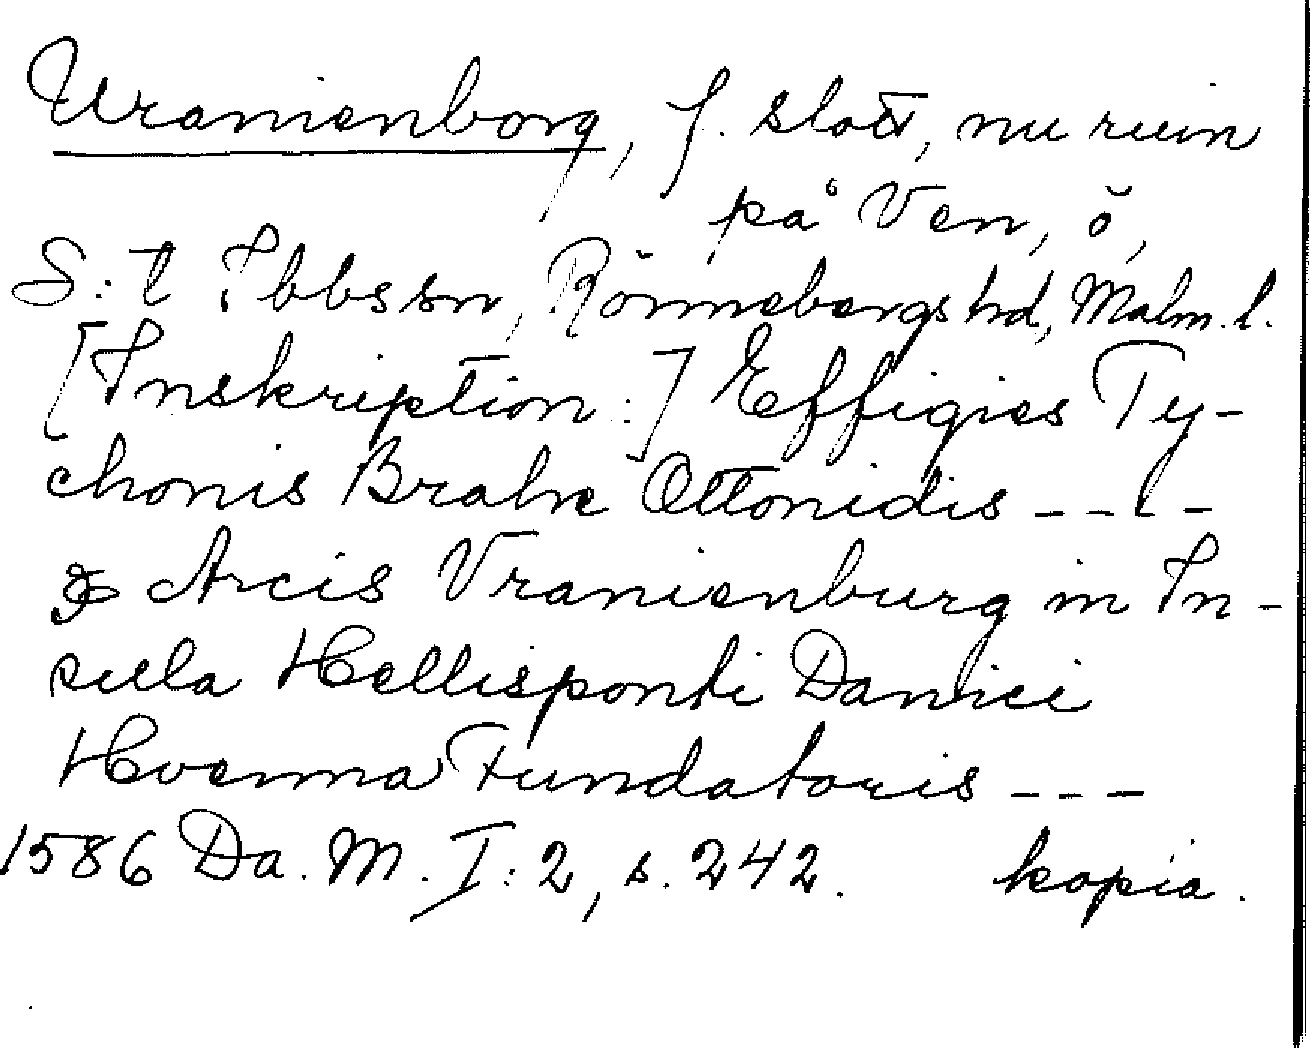 Uranienborg, f. slott, nu ruin
på Ven, ö,
S:t Ibbs sn, Rönnebergs hd, Malm. l.
[Inskription:] Effigies Ty-
chonis Brahe Ottonidis ----
& Arcis Vranienburg in In-
sula Hellisponti Danici
Hvenna Fundatoris ---
1586 Da. M. I:2, s. 242. kopia.